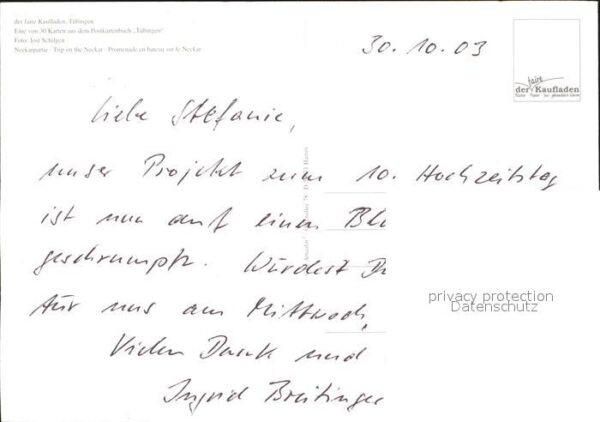 der faire Kaufladen, Tübingen
Eine von 30 Karten aus dem Postkartenbuch „Tübingen“
Foto: Jost Schilgen
Neckarpartie · Trip on the Neckar · Promenade en bateau sur le Neckar
30.10.03
der faire Kaufladen
Liebe Stefanie,
unser Projekt zum 10. Hochzeitstag
ist nun auf einen Blu
geschrumpft. Würdest Du
für uns am Mittwoch,
Vielen Dank und
Ingrid Breitinger
privacy protection
Datenschutz